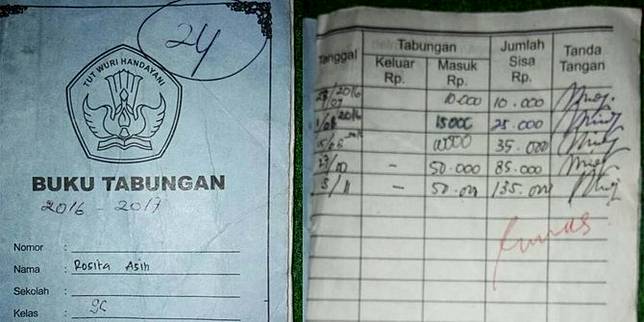 24
TUT WURI HANDAYANI
BUKU TABUNGAN
2016 - 2017
Nomor :
Nama : Rosita Asih
Sekolah :
Kelas : 9c
Tanggal Tabungan Jumlah Sisa Rp. Tanda Tangan
Keluar Rp. Masuk Rp.
28/07 2016 10.000 10.000
/08 2016 15000 25.000
10000 35.000
27/10 - 50.000 85.000
3/11 - 50.000 135.000
Lunas